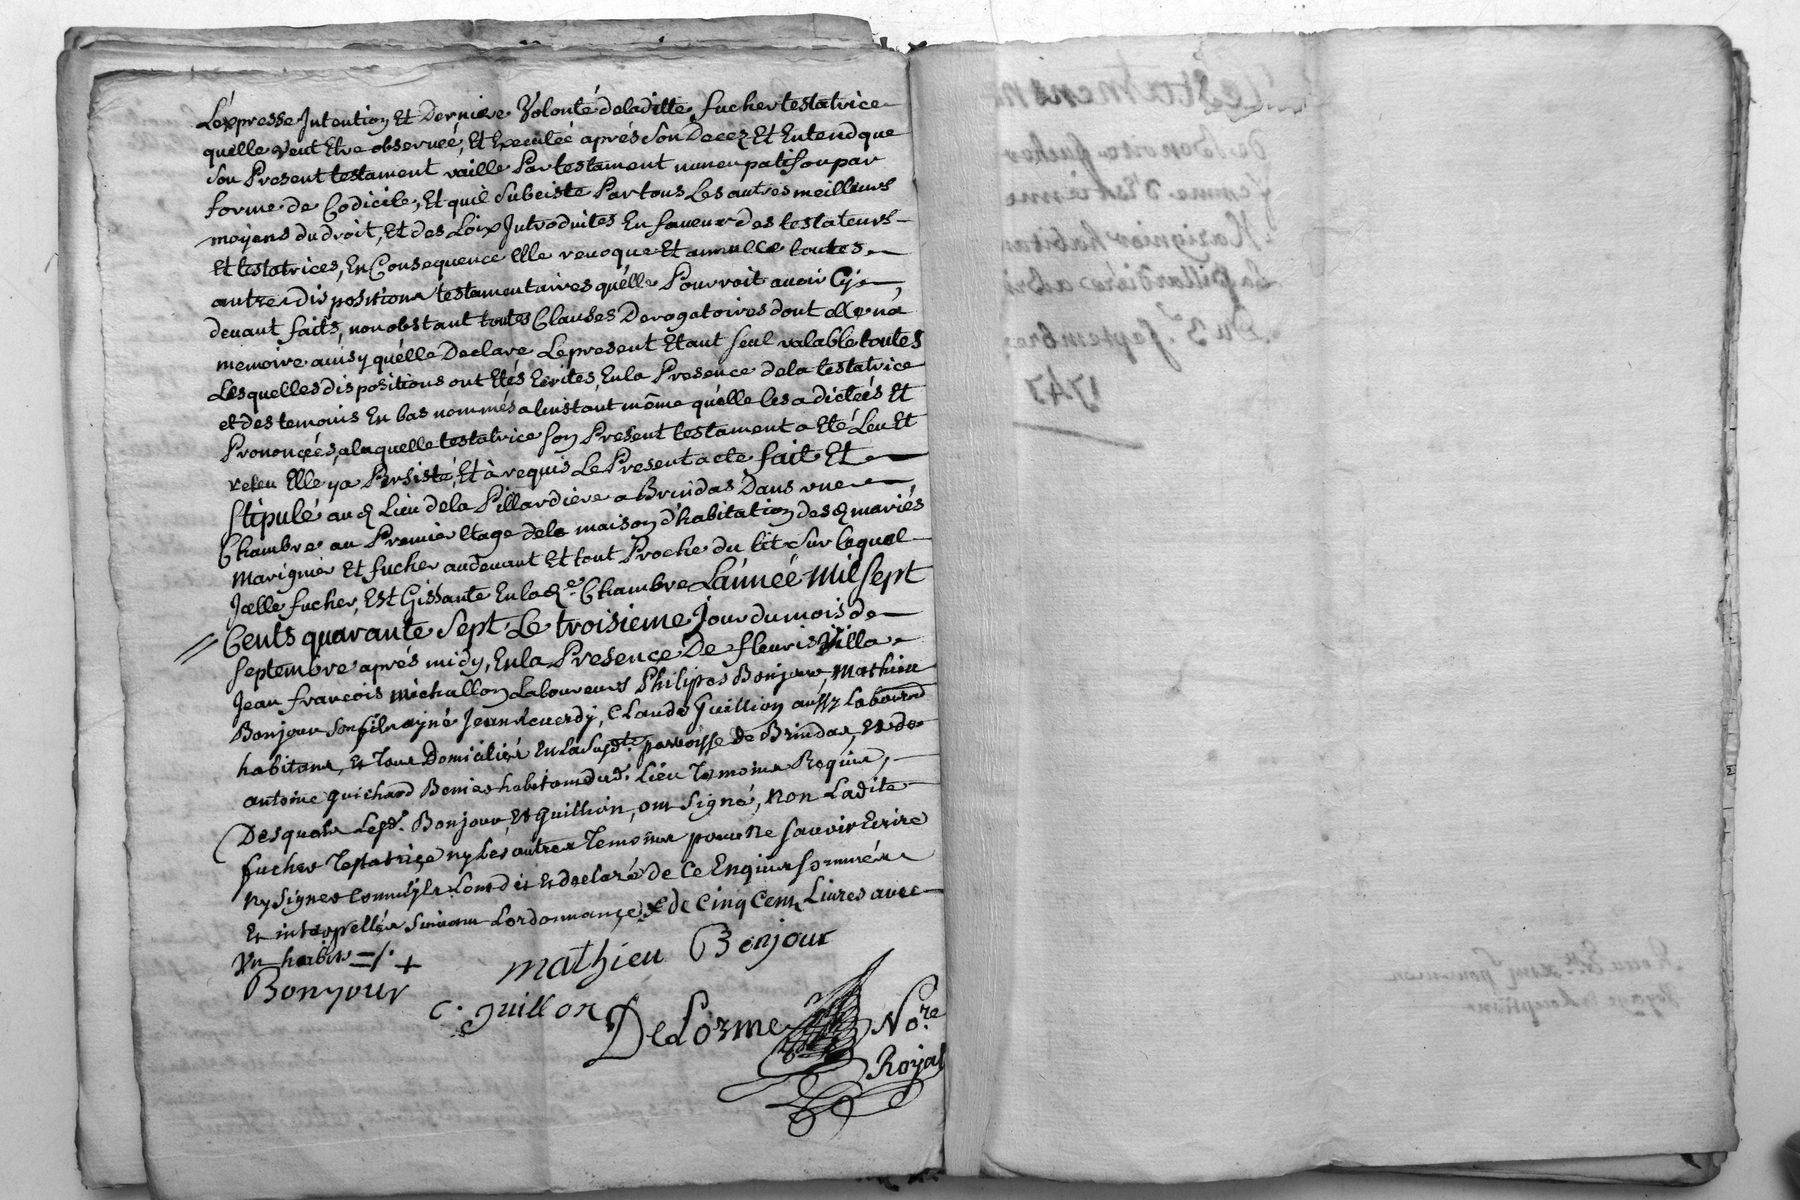 L'expresse Intention Et Derniere Volonté deladitte fucher testatrice
quelle veut Etre observeé, Et Executeé aprés Son Decez, Et Entend que
son Present testament vaille Par testament nuncupatif ou par
forme de Codicile, Et quil Subciste Par tous Les autres meilleurs
moyens du droit, Et des Loix Introduites En faveur des testateurs
Et testatrices, En Consequence Elle revoque Et annulle toutes
autres dispositions testamentaires quélle Pourroit avoir Cy
devant faits, nonobstant toutes Clauses Derogatoires dont elle na
memoire ainsy quélle Declare Le present Etant seul valable toutes
Lesquelles dispositions ont Etés Ecrites, En la Presence de la testatrice
et des temoins En bas nommés a linstant même quélle les a dicteés Et
Prononcées, a laquelle testatrice son Present testament a Eté Leu Et
releu Elle ya Persisté, Et à requis Le Present acte fait Et
Stipulé aud Lieu de la Pillardiere a Brindas Dans une
Chambre au Premier Etage de la maison d'habitation desd mariés
Marignier Et fucher audevant Et tout Proche du lit Sur lequel
Icelle fucher, Est Gissante En lad.e Chambre L'anneé Mil Sept
Cents quarante Sept Le troisieme Jour du mois de
Septembre aprés midy, En la Presence De fleuris Villa
Jean françois michallon Laboureurs Philipes Bonjour, Mathieu
Bonjour son fils ayné Jean Recuerdy, Claude Guillion aussy Laboureurs
habitans, et Tous Domiciliés En La Susd.te parroisse de Brindas, et de
antoine guichard Benier habitant dud. Lieu Temoins Requis,
Desquels Lesd. Bonjour, et guillion, ont Signé, non Ladite
fucher Testatriçe ny Les autres Temoins pour ne Sçavoir Ecrire
ny Signer Comm'ils Lont dit et declaré de Ce Enquis sommés
Et interpellés Suivant Lordonnançe, de Cinq Cent Livres avec
Un habits =/. +
mathieu Bonjour
Bonjour
C. guillon
DeLorme No.re
Royal
Testament
de Benoite fucher
femme d'Estienne
Marignier habitant
La pillardiere a Bri
Du 3.e Septembre
1747